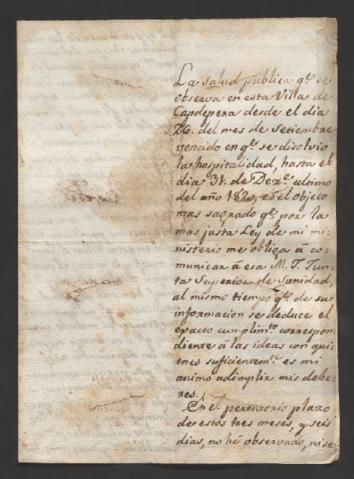 La salud publica qe. se
observa en esta Villa de
Capdepera desde el dia
26. del mes de Setiembre
vencido en qe. se disolvio
la hospitalidad, hasta el
dia 31. de Deze. ultimo
del año 1820, es el objeto
mas sagrado qe. por la
mas justa Ley de mi mi
nisterio me obliga á co-
municar á esa M. I. Jun-
ta Superior de Sanidad,
al mismo tiempo qe. de su
informacion se deduce el
exacto cumplimto. correspon
diente á las ideas con qui-
enes suficientemte. es mi
animo adimplir mis debe
res.
En el perentorio plazo
de estos tres meses, y seis
dias, no hé observado, ni se